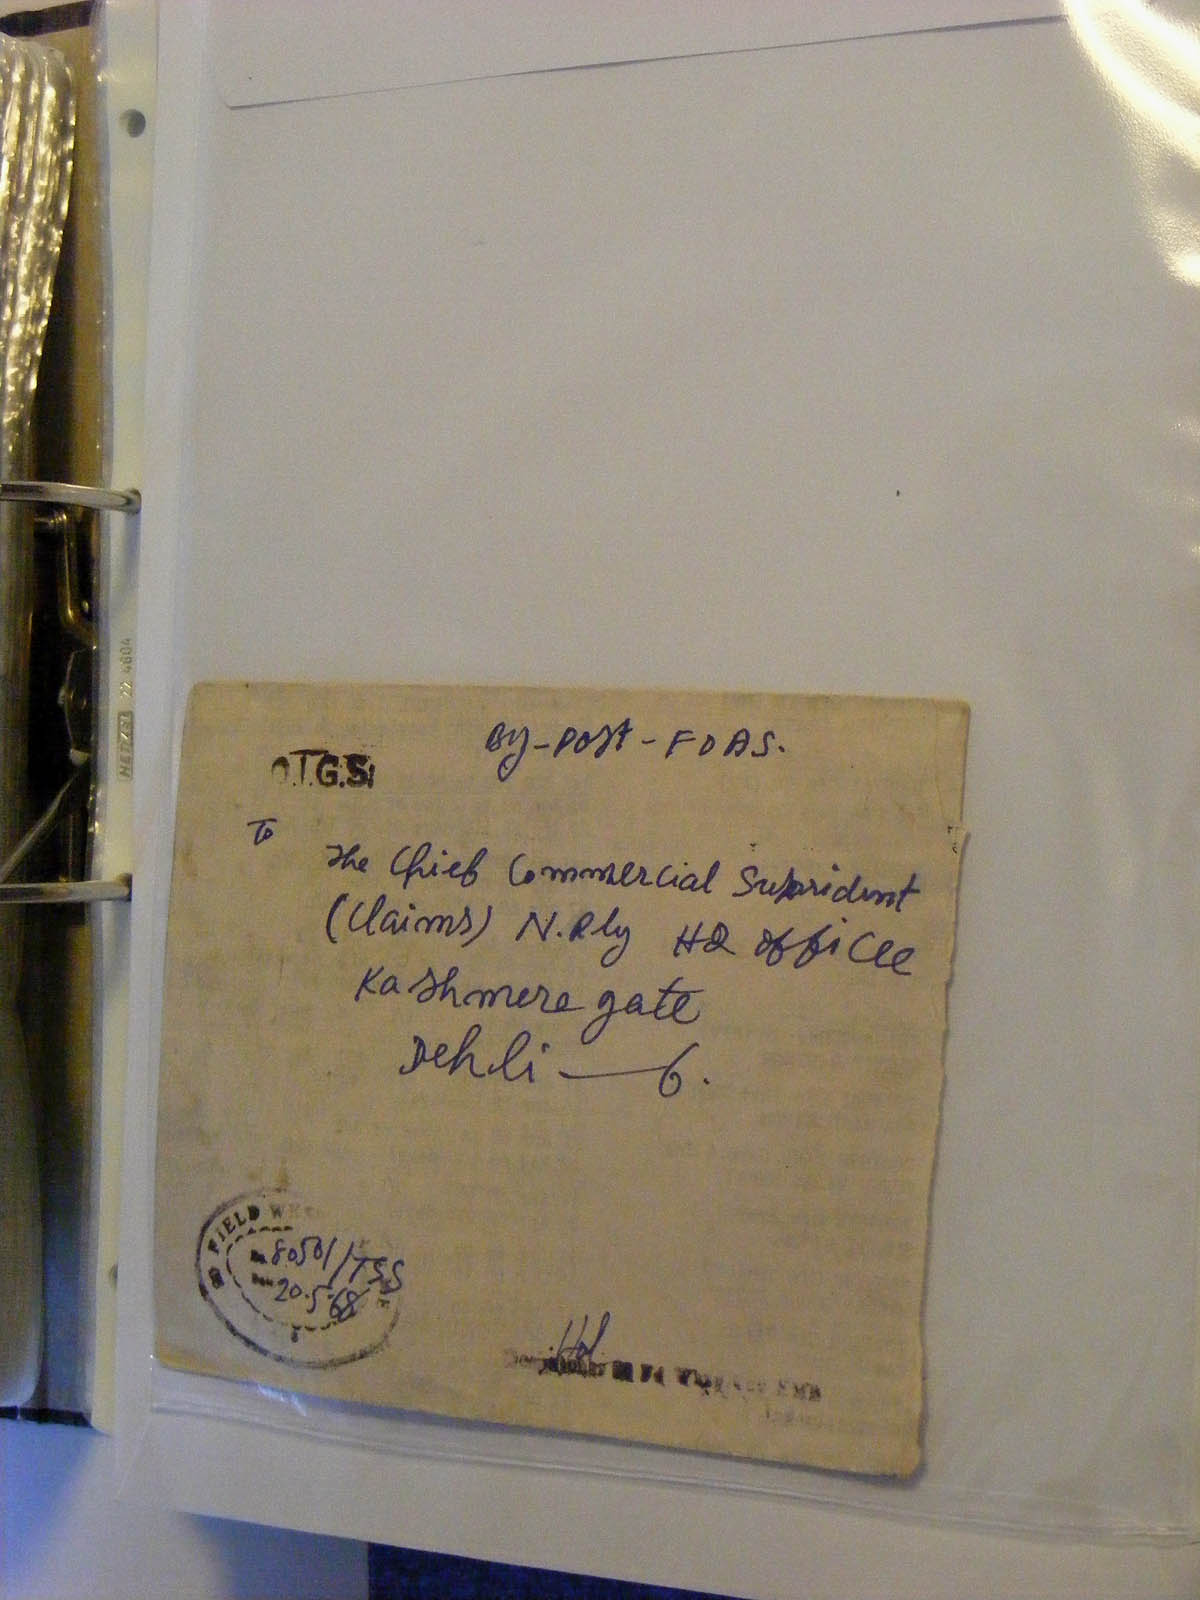 By-Post-FDAS.
O.T.G.S.
To
The Chief Commercial Supridint
(Claims) N.Rly HQ Officee
Kashmere gate
Dehli — 6.
FIELD
80501/TSS
20.5.68
HETZEL 22 4604